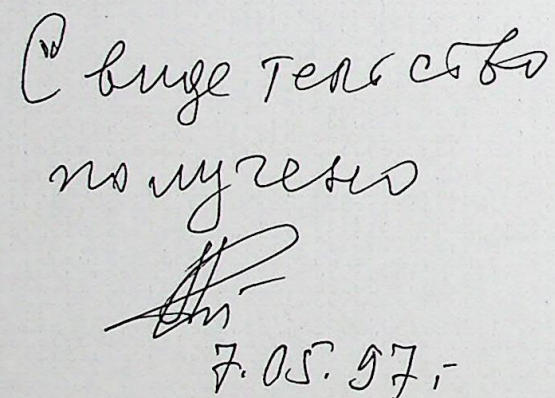 Свидетельство
получено
7.05.97г.